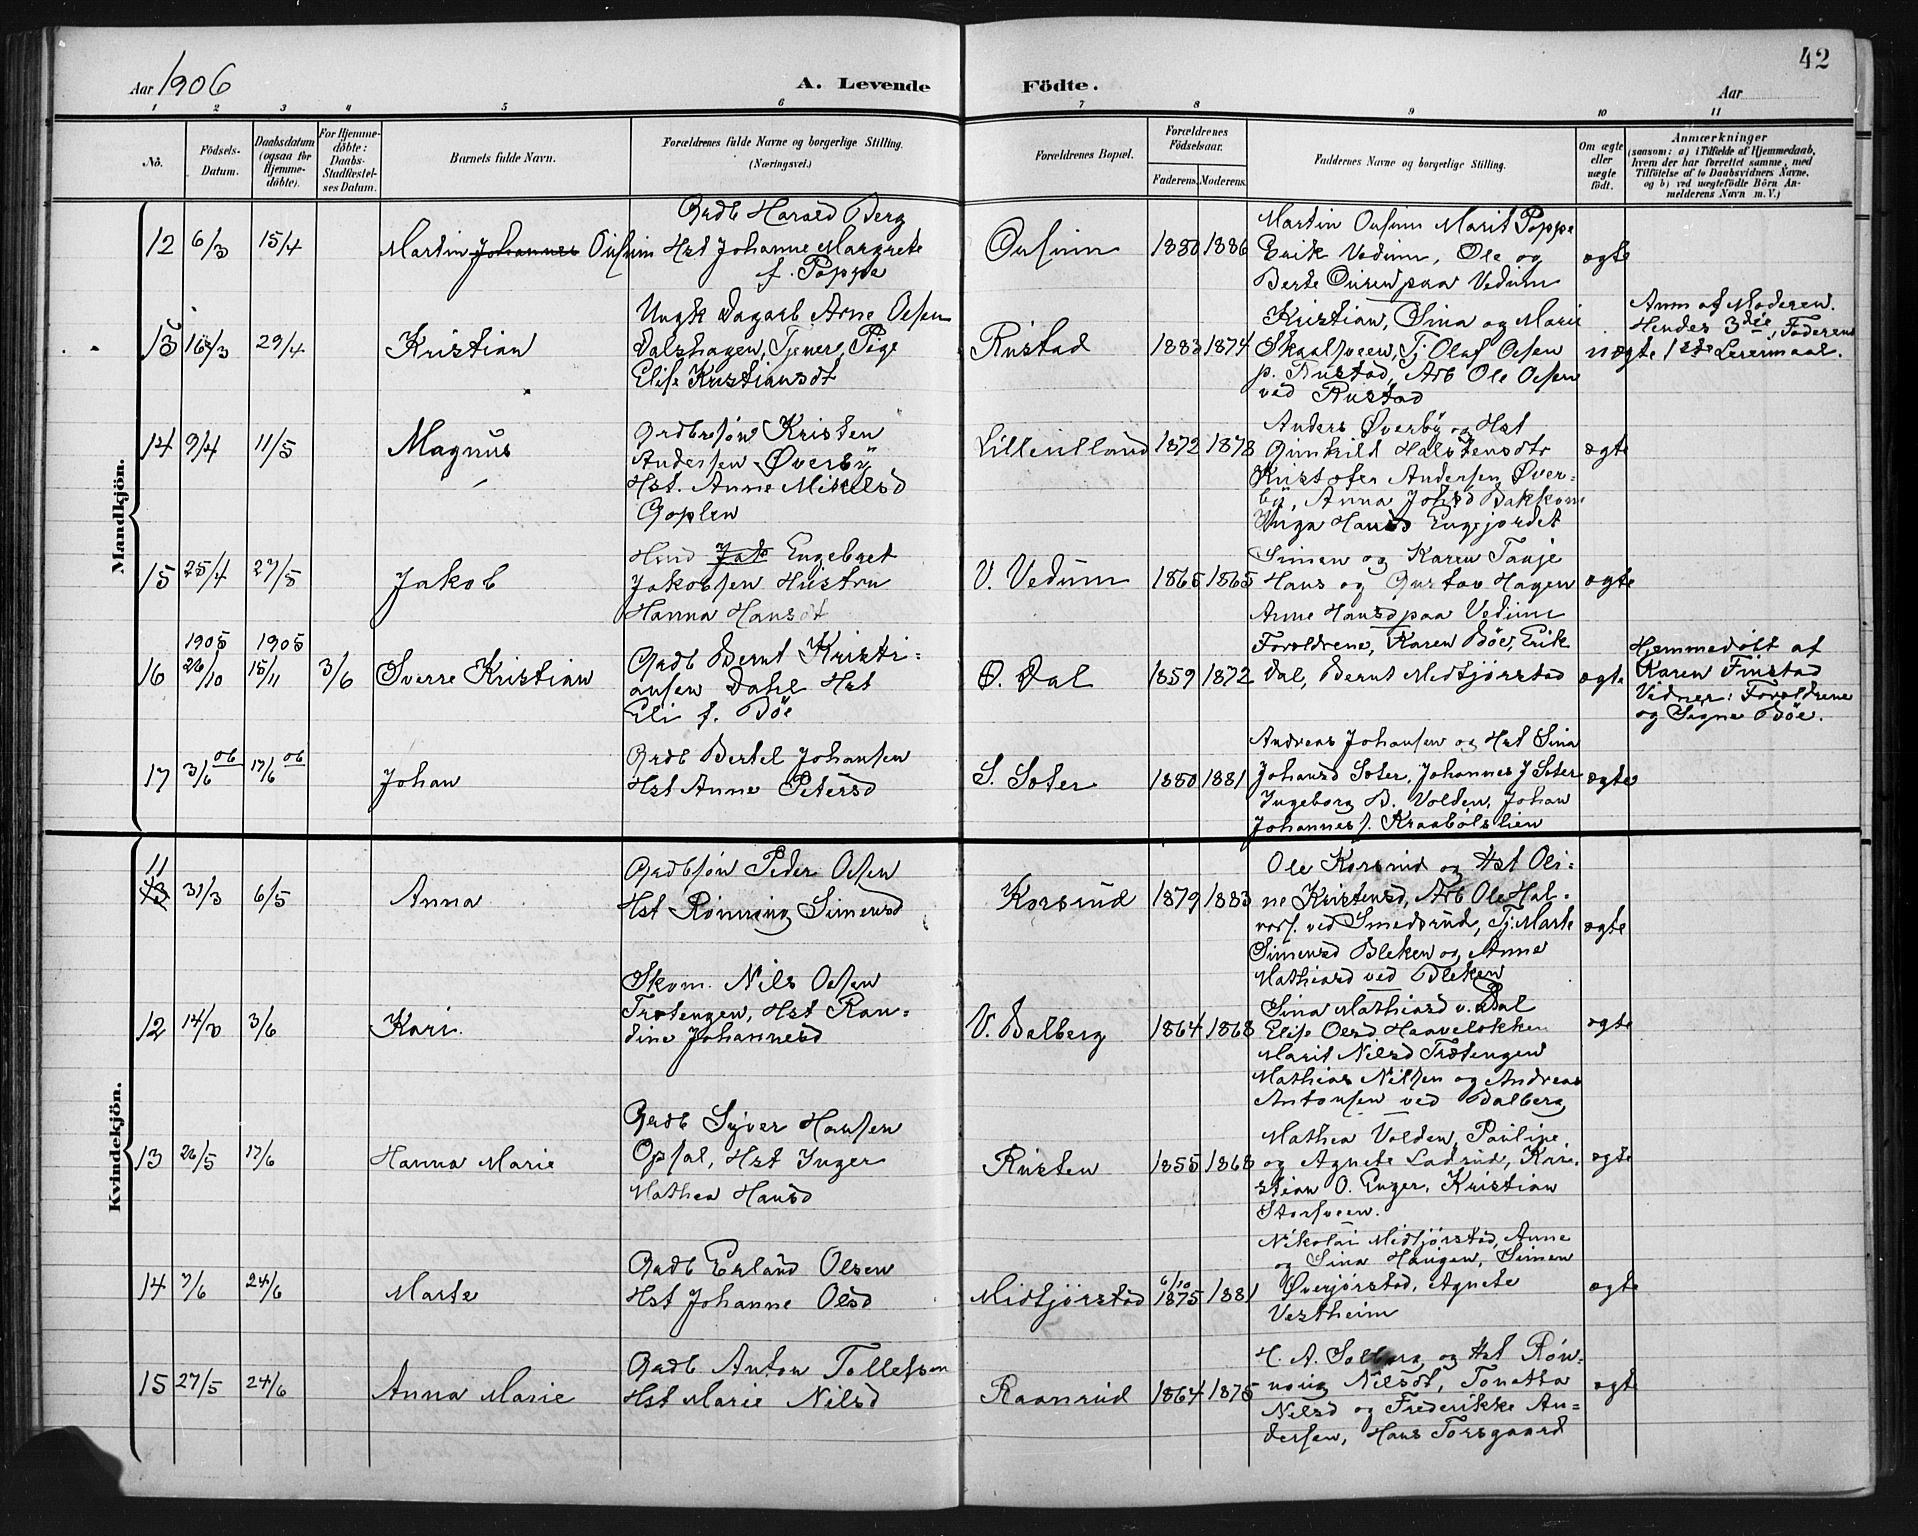 42
Aar 1906
A. Levende Födte.
Aar
1 2 3 4 5 6 7 8 9 10 11
No.
Födsels-Datum.
Daabsdatum (ogsaa for Hjemme-döbte).
For Hjemme-döbte: Daabs-Stadfæstel-ses Datum.
Barnets fulde Navn.
Forældrenes fulde Navne og borgerlige Stilling. (Næringsvei.)
Forældrenes Bopæl.
Forældrenes Födselsaar.
Faderens. Moderens.
Faddernes Navne og borgerlige Stilling.
Om ægte eller uægte födt.
Anmærkninger
(saasom: a) i Tilfælde af Hjemmedaab,
hvem der har forrettet samme, med
Tilföielse af to Daabsvidners Navne,
og b) ved uægtefödte Börn An-
melderens Navn m. V.)
Mandkjön.
12 6/3 15/4
Martin Johannes Ousum
Grdb Harald Berg
Hst Johanne Margrete
f. Poppe
Ousum
1880 1886
Martin Ousum Marit Poppe
Erik Vedum, Ole og
Berte Ouren paa Vedum
ægte
13 16/3 29/4
Kristian
Ungk Dagarb Arne Olsen
Dalshagen, Tjener Pige
Elise Kristiansdt
Rustad
1883 1874
Kristian, Sina og Marie
Skaalsveen, Tj Olaf Olsen
p. Rustad, Arb Ole Olsen
ved Rustad
uægte
Anm af Moderen.
Hendes 3die, Faderens
1ste Leiermaal.
14 9/4 11/5
Magnus
Grdbrsøn Kristen
Andersen Øverby
Hst. Anne Mikelsd
Goplen
Lillerilland
1872 1873
Anders Øverby og Hst
Gunhild Halstensdtr
Kristofer Andersen Øver-
by, Anna Johsd Bakkom
Inga Hansd Engejordet
ægte
15 25/4 27/5
Jakob
Hmd Jak Engebret
Jakobsen Hustru
Hanna Hansdt
V. Vedum
1865 1865
Simen og Karen Taaje
Hans og Gustav Hagen
Anne Hansd paa Vedum
ægte
16 1905 26/10 1905 15/11 3/6
Sverre Kristian
Grdb Bernt Kristi-
ansen Dahl Hst
Eli f. Böe
Ø. Dal
1859 1872
Foroldrene, Karen Böe, Erik
Dal, Bernt Midtjørstad
ægte
Hjemmedøbt af
Karen Finstad
Vidner: Foroldrene
og Signe Böe.
17 3/6 06 17/6 06
Johan
Grdb Bertel Johansen
Hst Anne Petersd
S. Soter
1880 1881
Andreas Johansen og Hst Sina
Johansd Soter, Johannes J Soter
Ingeborg B. Volden, Johan
Johannes f. Kraabølslien
ægte
Kvindekjön.
11
13 31/3 6/5
Anna
Grdbsøn Peder Olsen
Hst Rønnaug Simensd
Korsrud
1879 1883
Ole Korsrud og Hst Oli-
ne Kristensd, Arb Ole Hal-
vors. ved Smedsrud, Tj. Marte
Simensd Bleken og Anne
Mathiasd ved Bleken
ægte
12 14/3 3/6
Kari
Skom. Nils Olsen
Trotengen, Hst Ran-
dine Johannesd
V. Balberg
1864 1868
Sina Mathiasd v. Bal
Elise Olsd Haaveløkken
Marit Nilsd Trotengen
Mathias Nilsen og Andreas
Antonsen ved Balberg
ægte
13 26/5 17/6
Hanna Marie
Grdb Syver Hansen
Opsal, Hst Inger
Mathea Hansd
Rusten
1855 1868
Mathea Volden, Pauline
og Agnete Ladsrud, Kri-
stian O. Enger, Kristian
Storsveen.
ægte
14 7/6 24/6
Marte
Grdb Erland Olsen
Hst Johanne Olsd
Midtjørstad
6/10 1875 1881
Nikolai Midtjørstad, Anne
og Sina Haugen, Simen
Øverjørstad, Agnete
Vestheim
ægte
15 27/5 24/6
Anna Marie
Grdb Anton Tollefsen
Hst Marie Nilsd
Raanrud
1864 1875
H. A. Solberg og Hst Røn-
naug Nilsdt, Tonetta
Nilsd og Frederikke An-
dersen, Hans Torsgaard
ægte